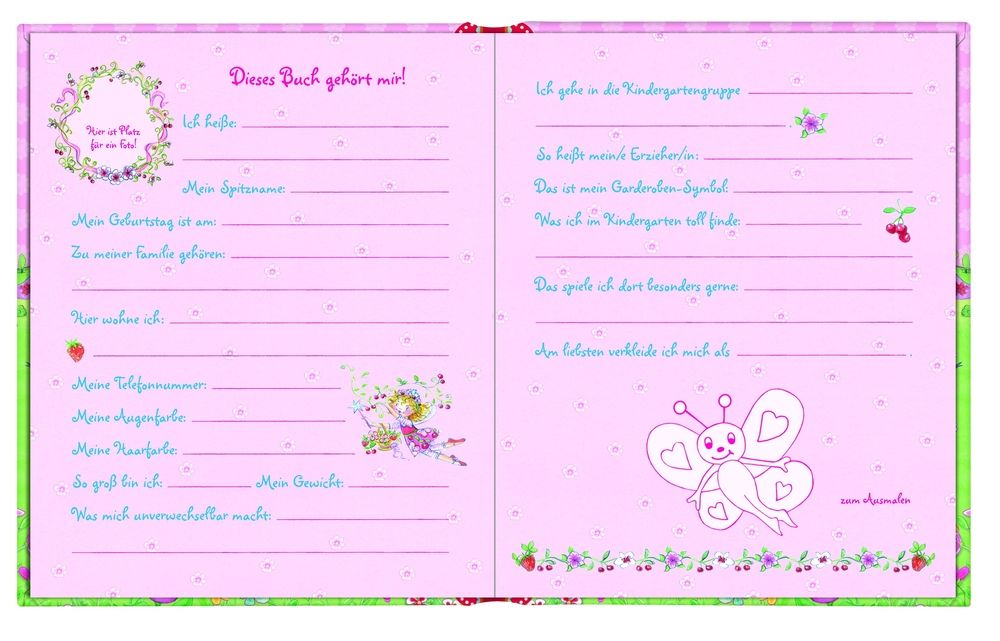 Dieses Buch gehört mir!
Hier ist Platz
für ein Foto!
Ich heiße:
Mein Spitzname:
Mein Geburtstag ist am:
Zu meiner Familie gehören:
Hier wohne ich:
Meine Telefonnummer:
Meine Augenfarbe:
Meine Haarfarbe:
So groß bin ich: Mein Gewicht:
Was mich unverwechselbar macht:
Ich gehe in die Kindergartengruppe
.
So heißt mein/e Erzieher/in:
Das ist mein Garderoben-Symbol:
Was ich im Kindergarten toll finde:
Das spiele ich dort besonders gerne:
Am liebsten verkleide ich mich als .
zum Ausmalen